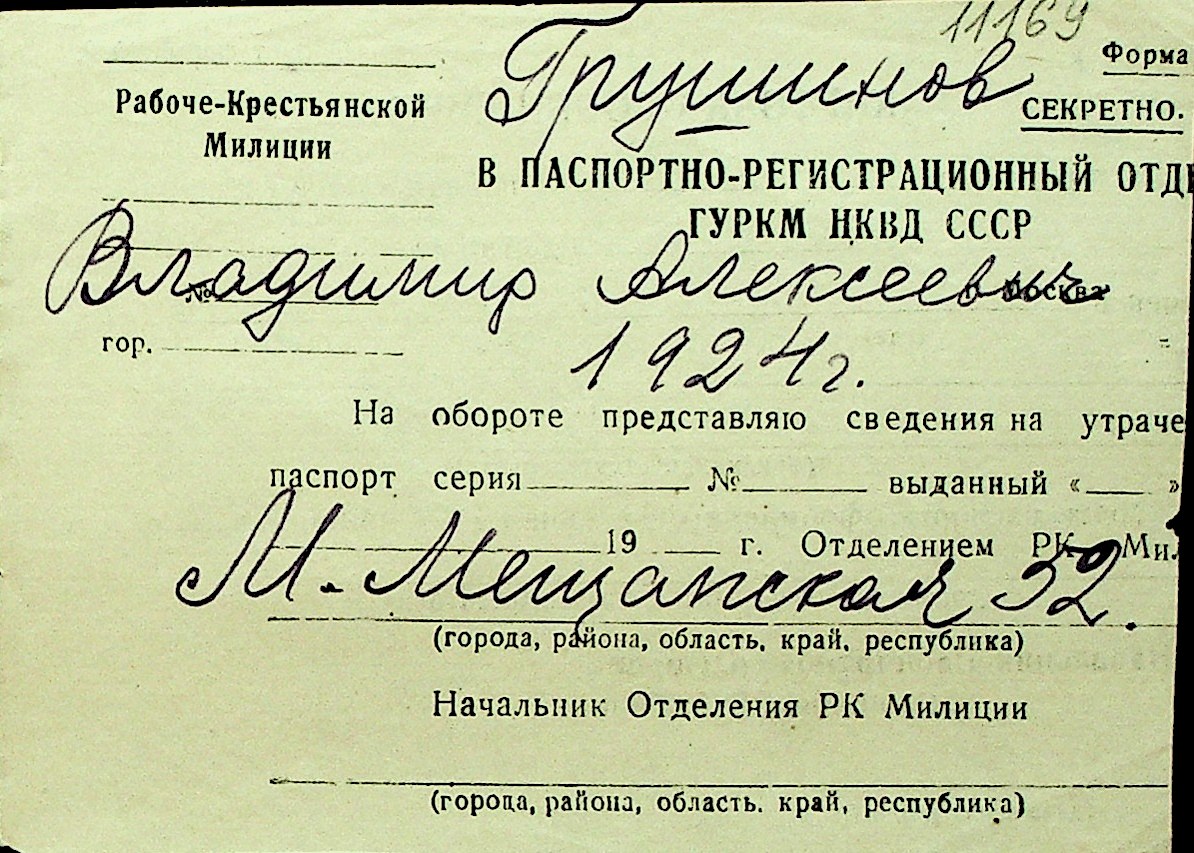 11169
Грушинов
Форма
Рабоче-Крестьянской
Милиции
СЕКРЕТНО.
В ПАСПОРТНО-РЕГИСТРАЦИОННЫЙ ОТДЕ
ГУРКМ НКВД СССР
Владимир Алексеевич
№ Москва
гор.
1924 г.
На обороте представляю сведения на утраче
паспорт серия № выданный « »
19 г. Отделением РК Мил
М. Мещанская 52.
(города, района, область, край, республика)
Начальник Отделения РК Милиции
(города, района, область, край, республика)